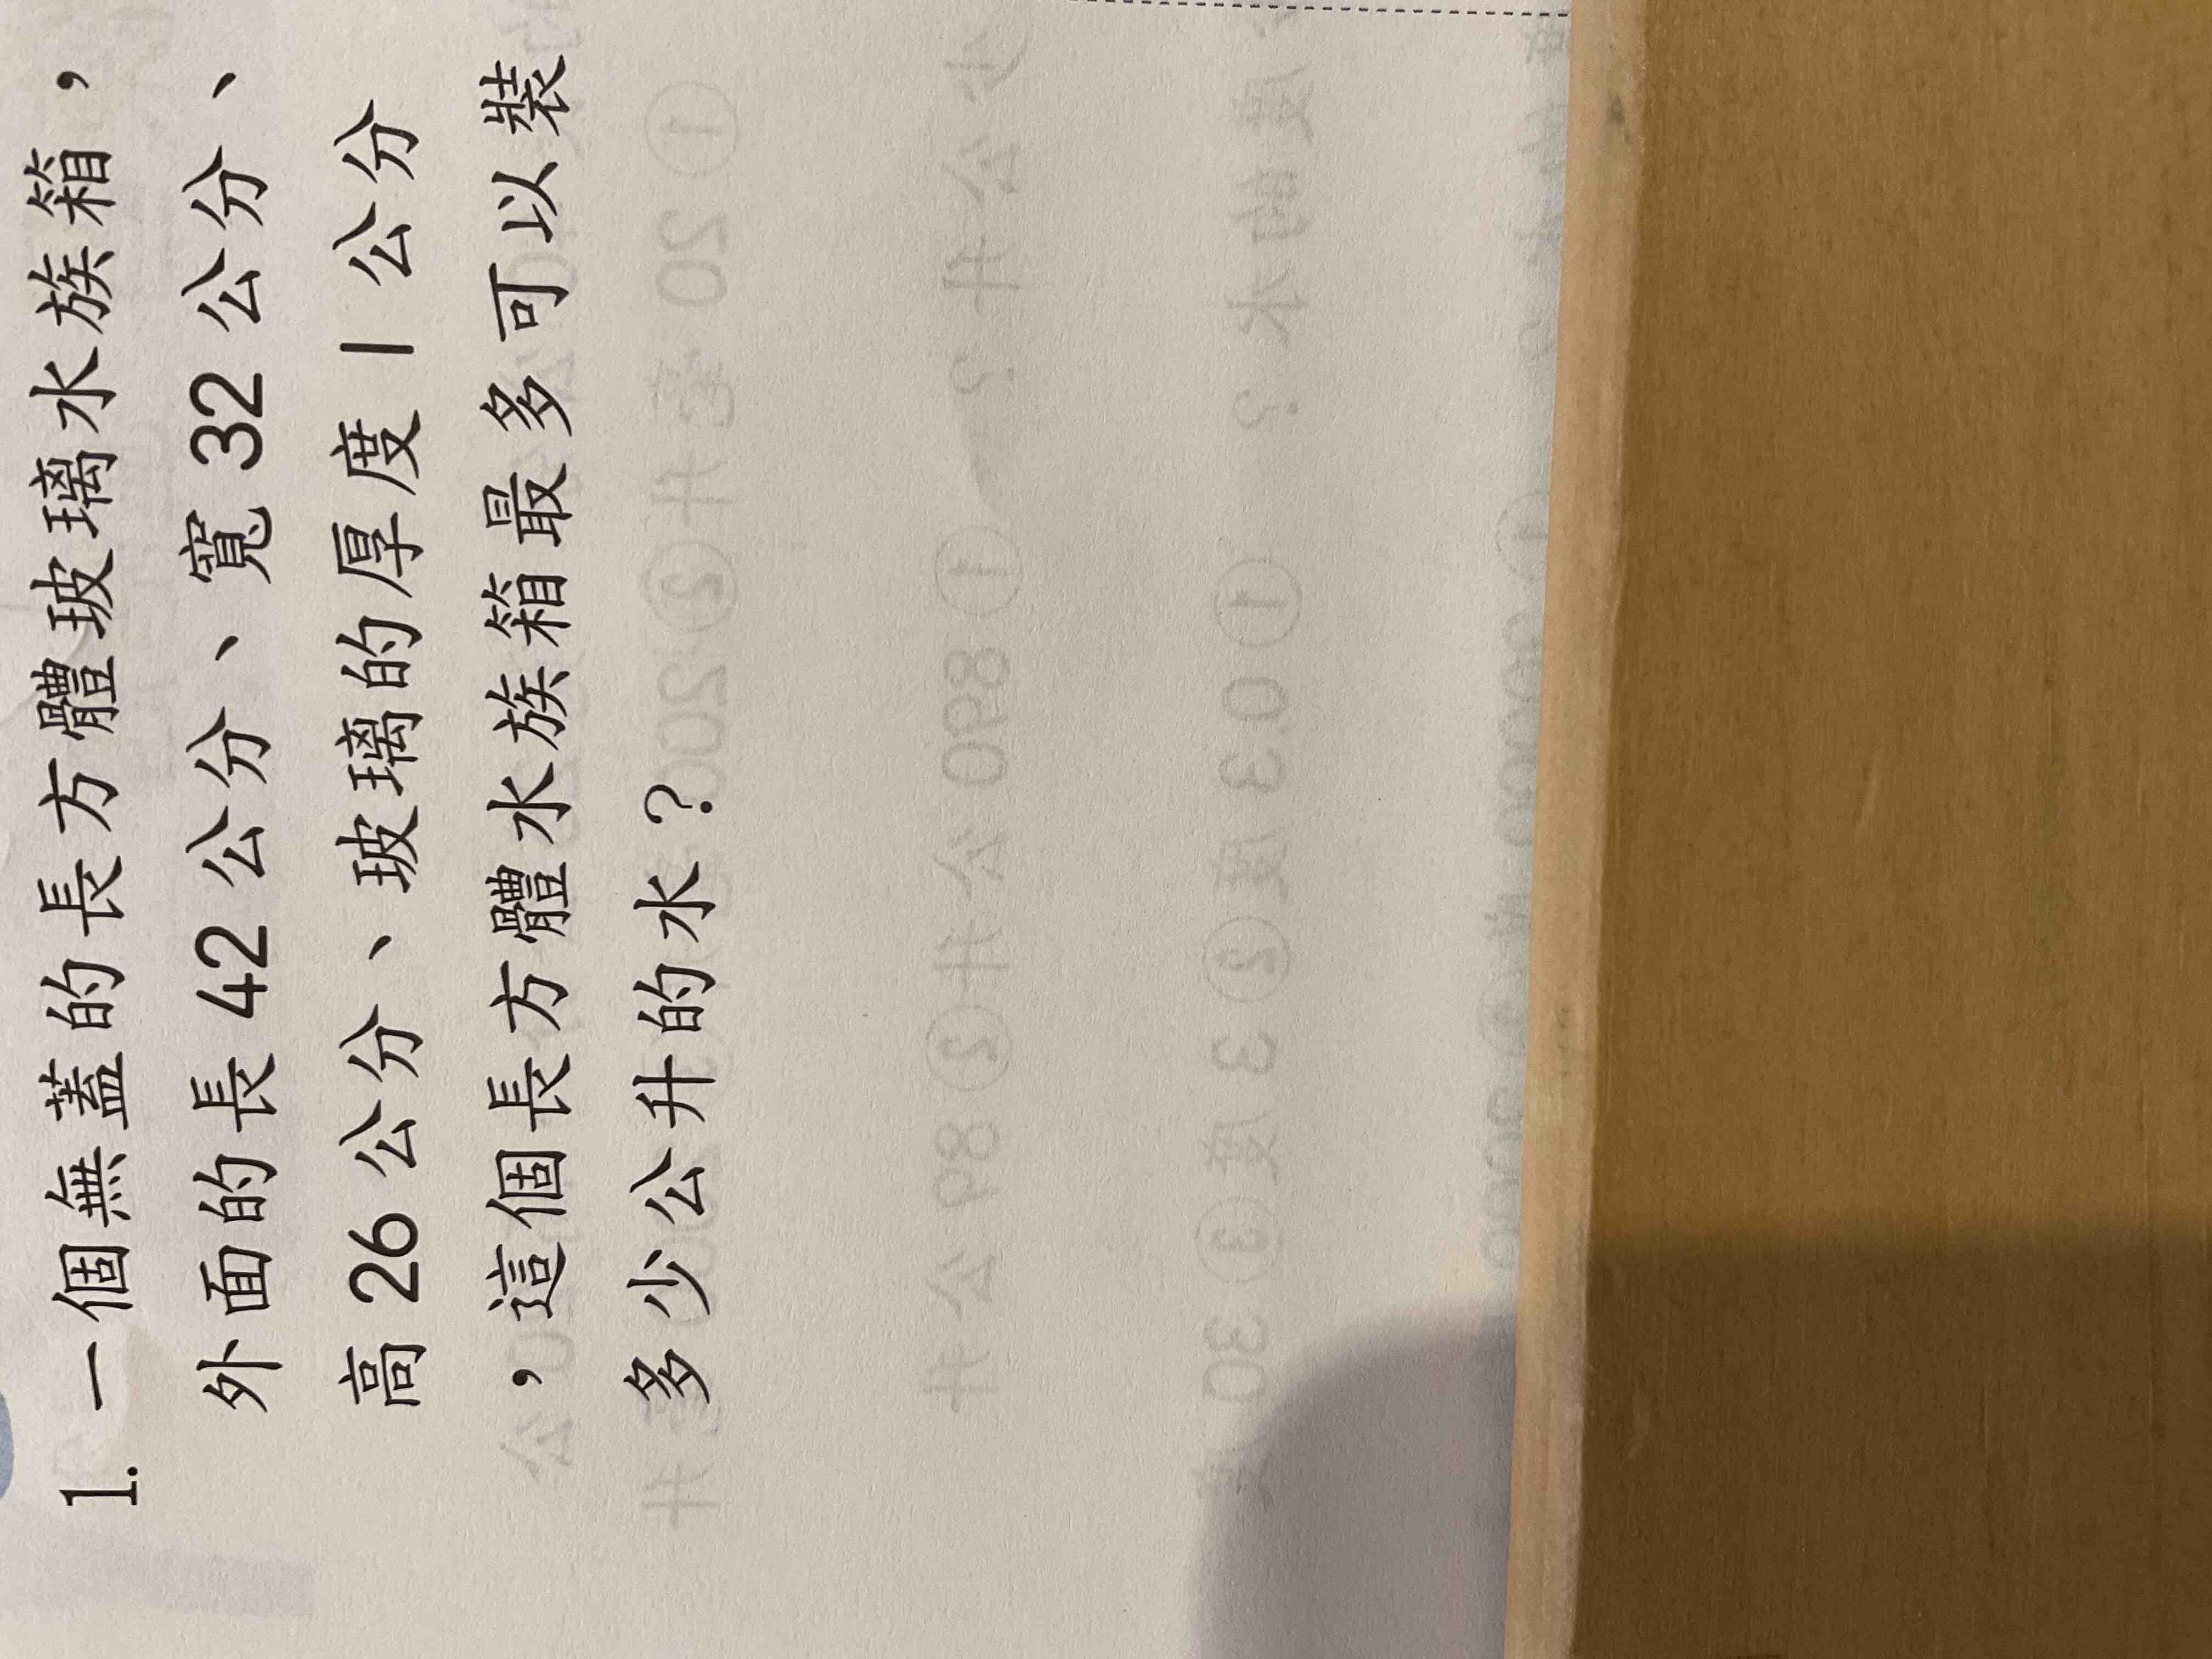 1. 一個無蓋的長方體玻璃水族箱，
外面的長 42 公分、寬 32 公分、
高 26 公分、玻璃的厚度 1 公分
，這個長方體水族箱最多可以裝
多少公升的水？